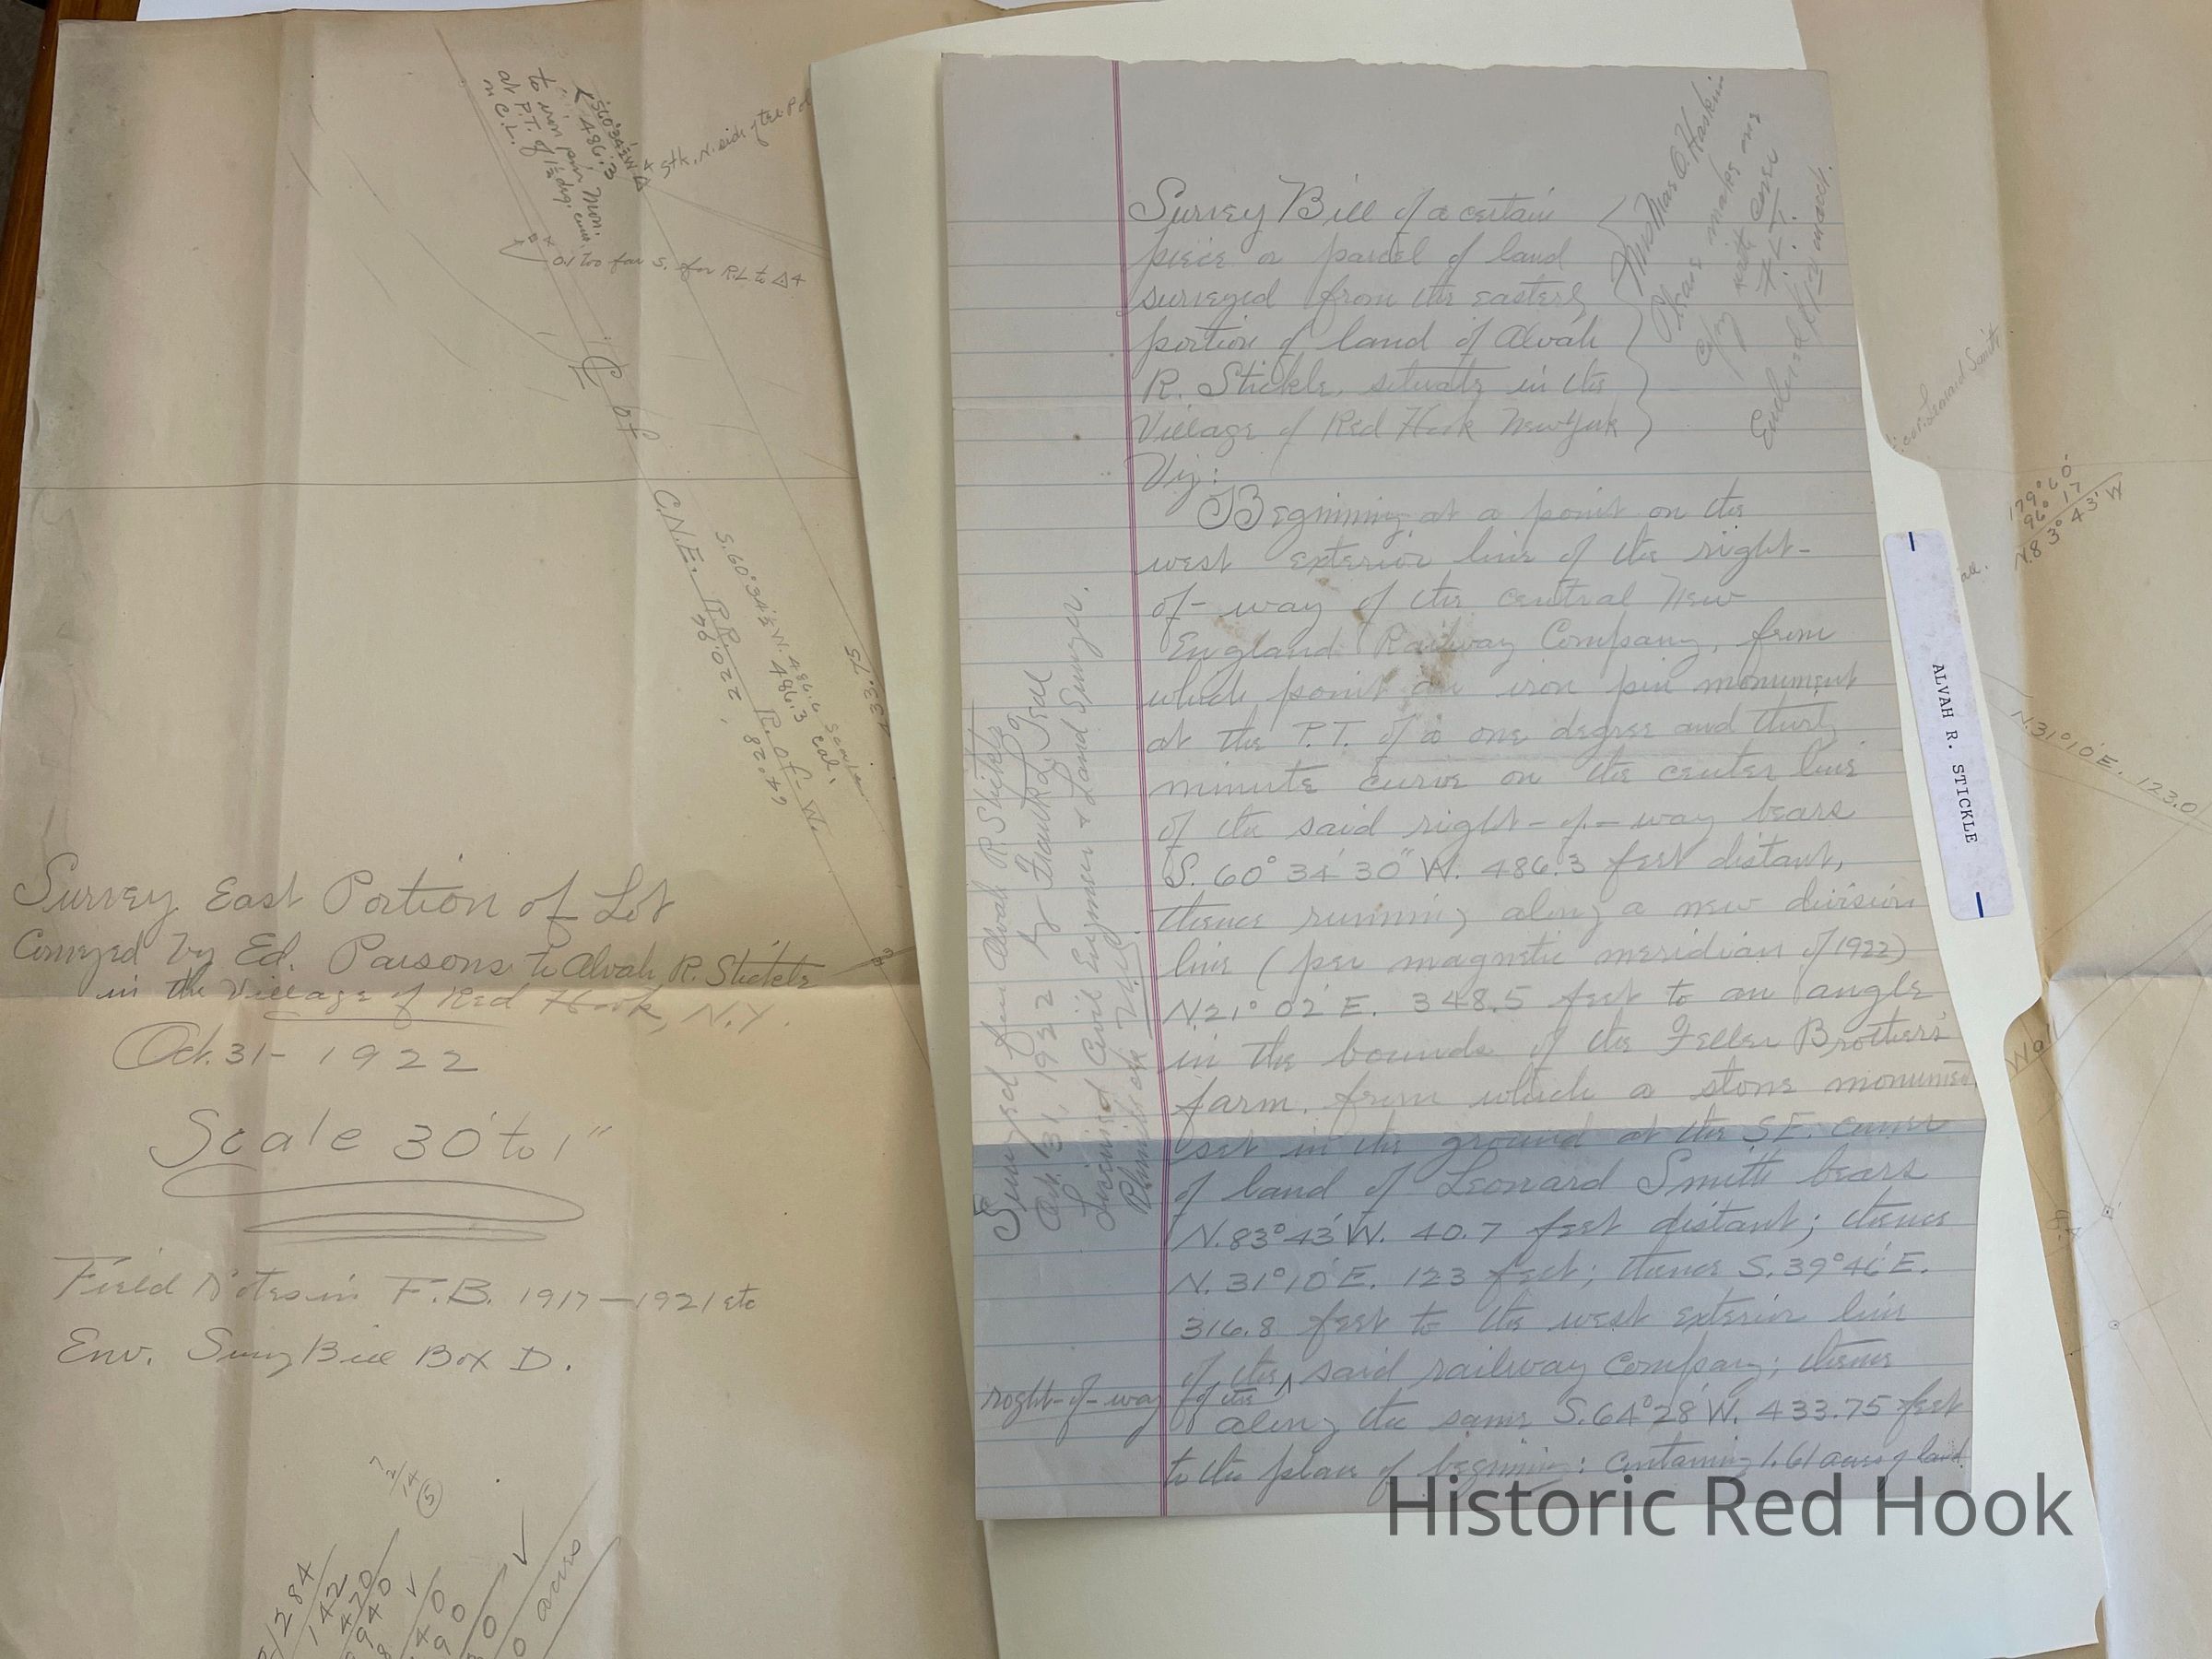 S60°34½'W
486.3
to iron pin Mon.
at P.T. of 1½ deg. curve
in C.L.
Stk. N. side of the Rd
0.1 too far S. for RL to △4
C of
L
C.N.E. R.R. R. of W.
S. 60°34½' W. 486.6 scale
486.3 cal.
433.75
33
Survey East Portion of Lot
Conveyed by Ed. Parsons to Alvah R. Stickle
in the Village of Red Hook, N.Y.
Oct. 31 - 1922
Scale 30' to 1"
Field Notes in F.B. 1917 - 1921 etc
Env. Survey Bill Box D.
284
142
acres
Survey Bill of a certain
piece or parcel of land
surveyed from the easterly
portion of land of Alvah
R. Stickle, situate in the
Village of Red Hook New York
Viz:
Beginning at a point on the
west exterior line of the right-
of-way of the central New
England Railway Company, from
which point an iron pin monument
at the P.T. of a one degree and thirty
minute curve on the center line
of the said right-of-way bears
S. 60° 34' 30" W. 486.3 feet distant,
thence running along a new division
line (per magnetic meridian of 1922)
N. 21° 02' E. 348.5 feet to an angle
in the bounds of the Feller Brothers
farm, from which a stone monument
set in the ground at the S.E. corner
of land of Leonard Smith bears
N. 83° 43' W. 40.7 feet distant; thence
N. 31° 10' E. 123 feet; thence S. 39° 46' E.
316.8 feet to the west exterior line
of the ^ said railway company; thence
right-of-way of the
along the same S. 64° 28' W. 433.75 feet
to the place of beginning: containing 1.61 acres of land
Thos Mas O. Haskin
Please make one
copy with
Surveyed for Alvah R. Stickle
Oct. 31, 1922 by Frank
Licensed Civil Engineer & Land Surveyor.
Rhinebeck N.Y.
ALVAH R. STICKLE
cor. Leonard Smith
179° 60'
96° 17'
N. 83° 43' W
N. 31° 10' E. 123.0
Wall
Historic Red Hook